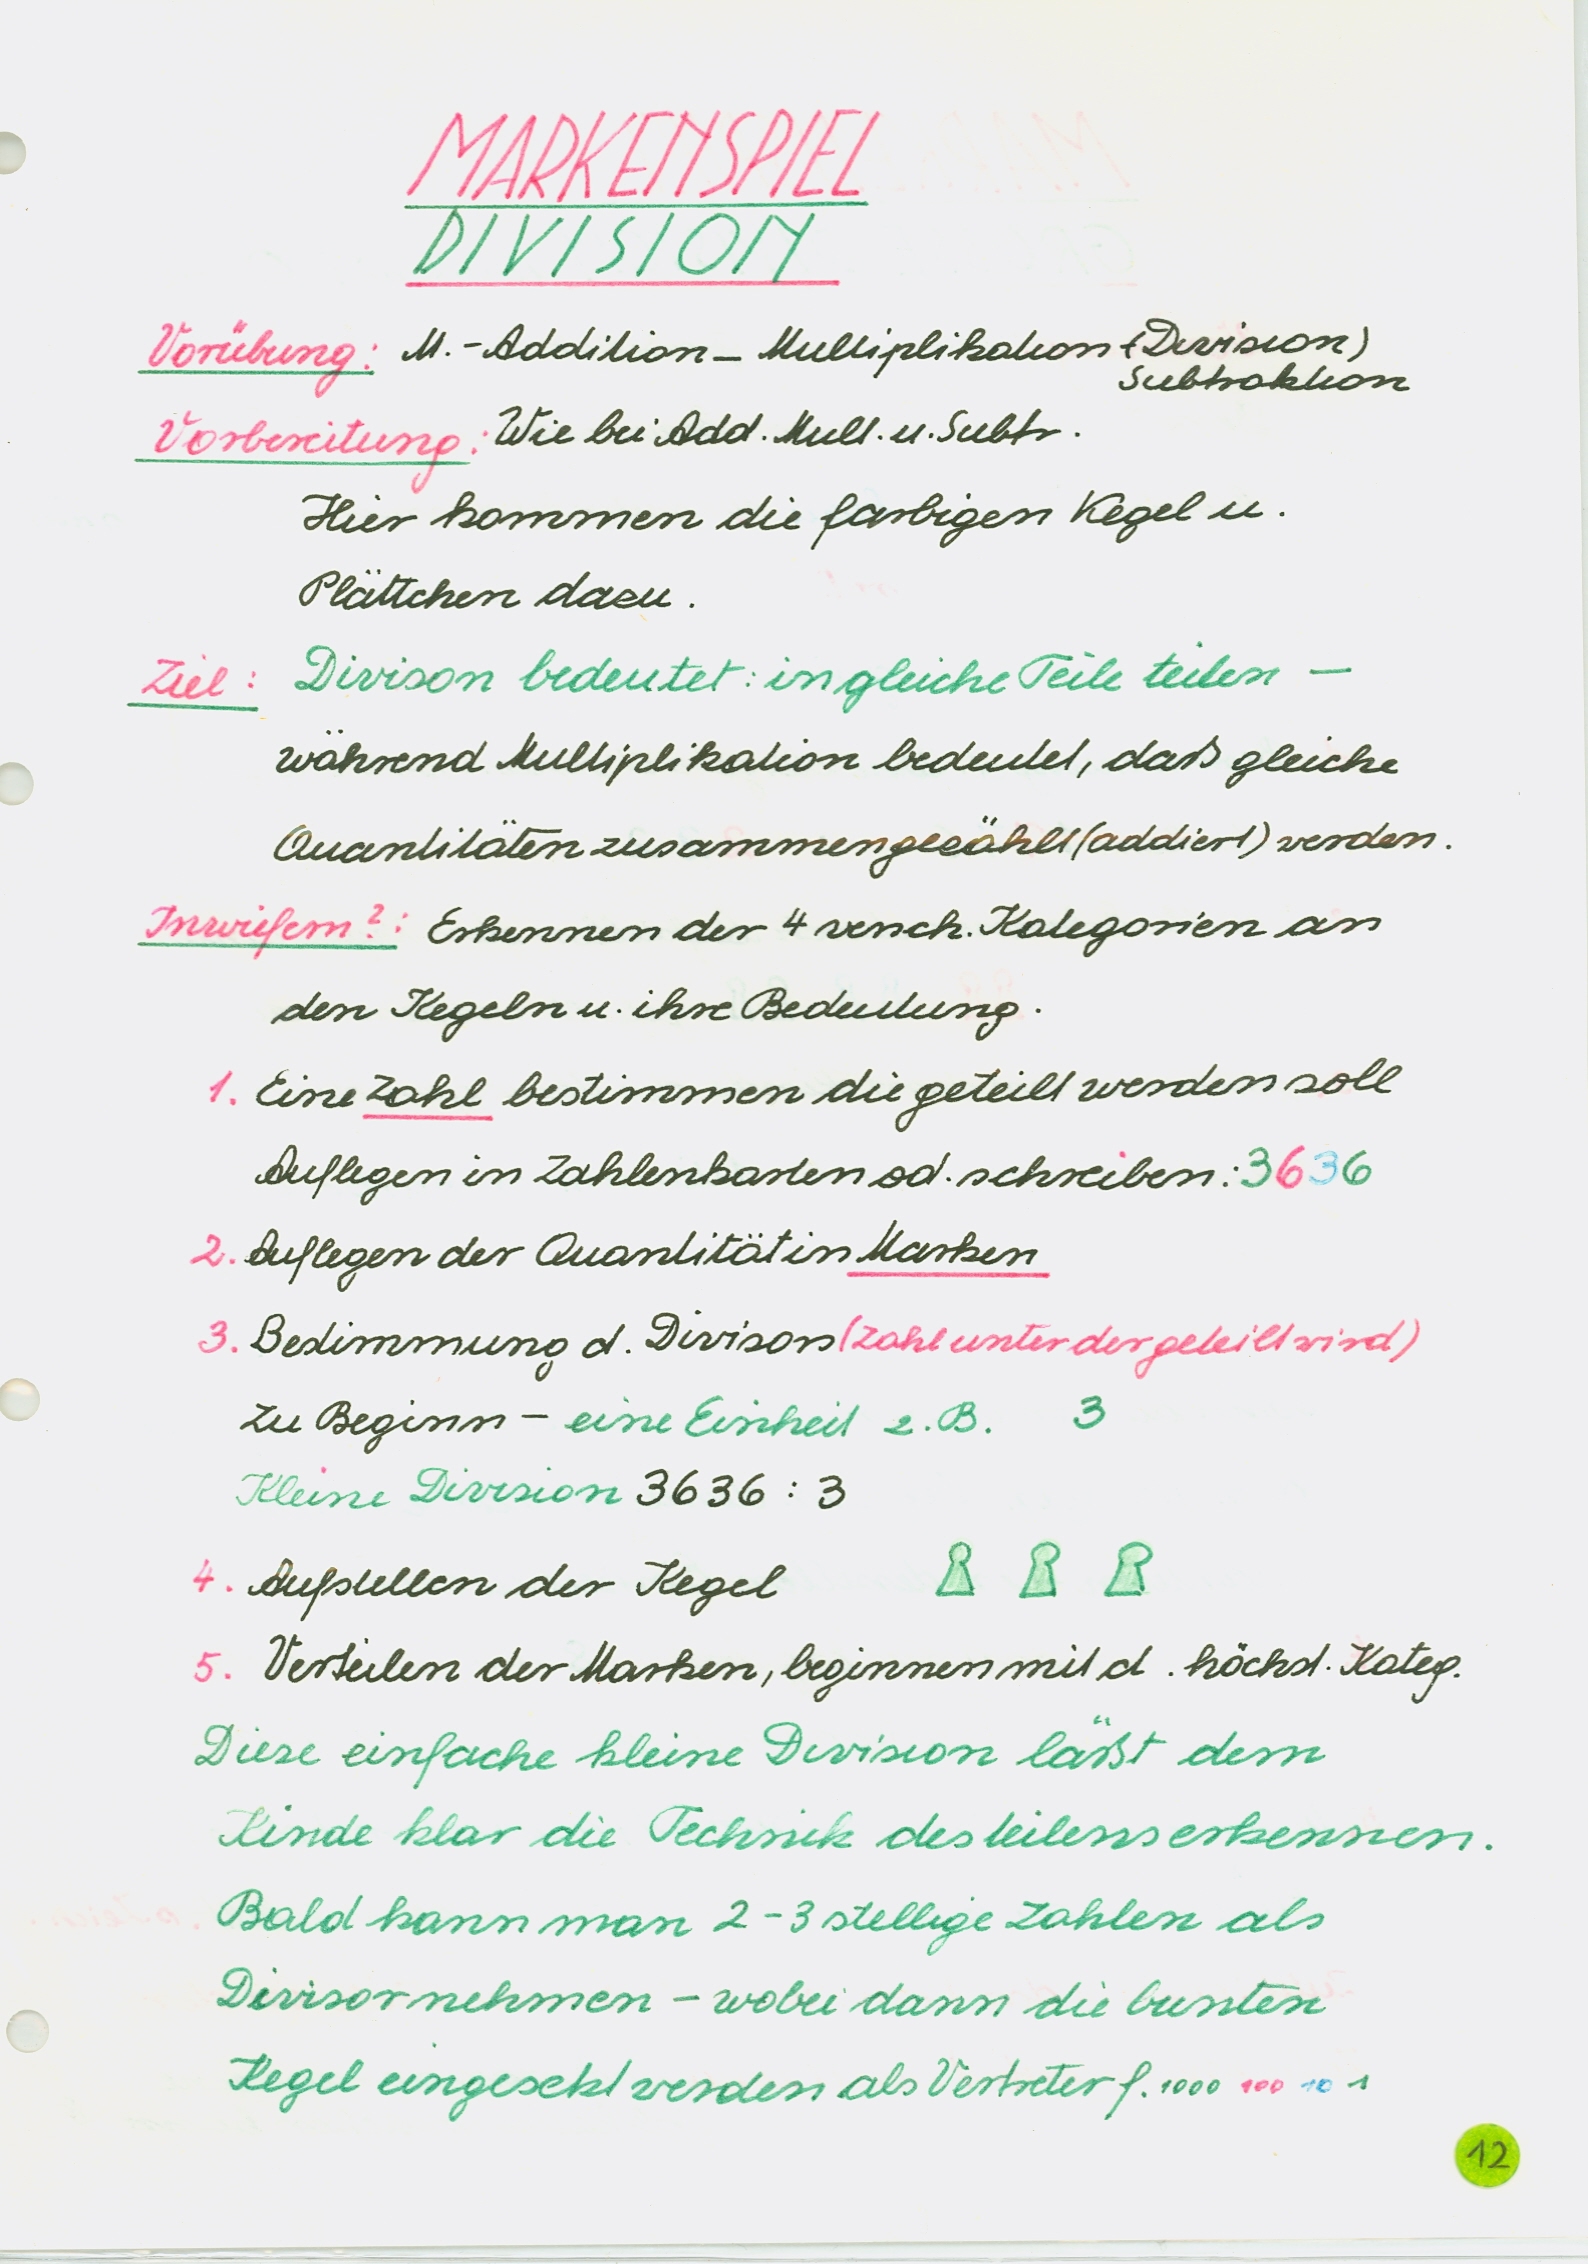 MARKENSPIEL
DIVISION
Vorübung: M.-Addition – Multiplikation (Division)
Subtraktion
Vorbereitung: Wie bei Add. Mult. u. Subtr.
Hier kommen die farbigen Kegel u.
Plättchen dazu.
Ziel: Divison bedeutet: in gleiche Teile teilen –
während Multiplikation bedeutet, daß gleiche
Quantitäten zusammengezählt (addiert) werden.
Inwiefern?: Erkennen der 4 versch. Kategorien an
den Kegeln u. ihre Bedeutung.
1. Eine Zahl bestimmen die geteilt werden soll
Auflegen in Zahlenkarten od. schreiben: 3636
2. Auflegen der Quantität in Marken
3. Bestimmung d. Divisors (Zahl unter der geteilt wird)
Zu Beginn – eine Einheit z.B. 3
Kleine Division 3636 : 3
4. Aufstellen der Kegel
5. Verteilen der Marken, beginnen mit d. höchst. Kateg.
Diese einfache kleine Division läßt dem
Kinde klar die Technik des teilens erkennen.
Bald kann man 2-3 stellige Zahlen als
Divisor nehmen – wobei dann die bunten
Kegel eingesetzt werden als Vertreter f. 1000 100 10 1
12